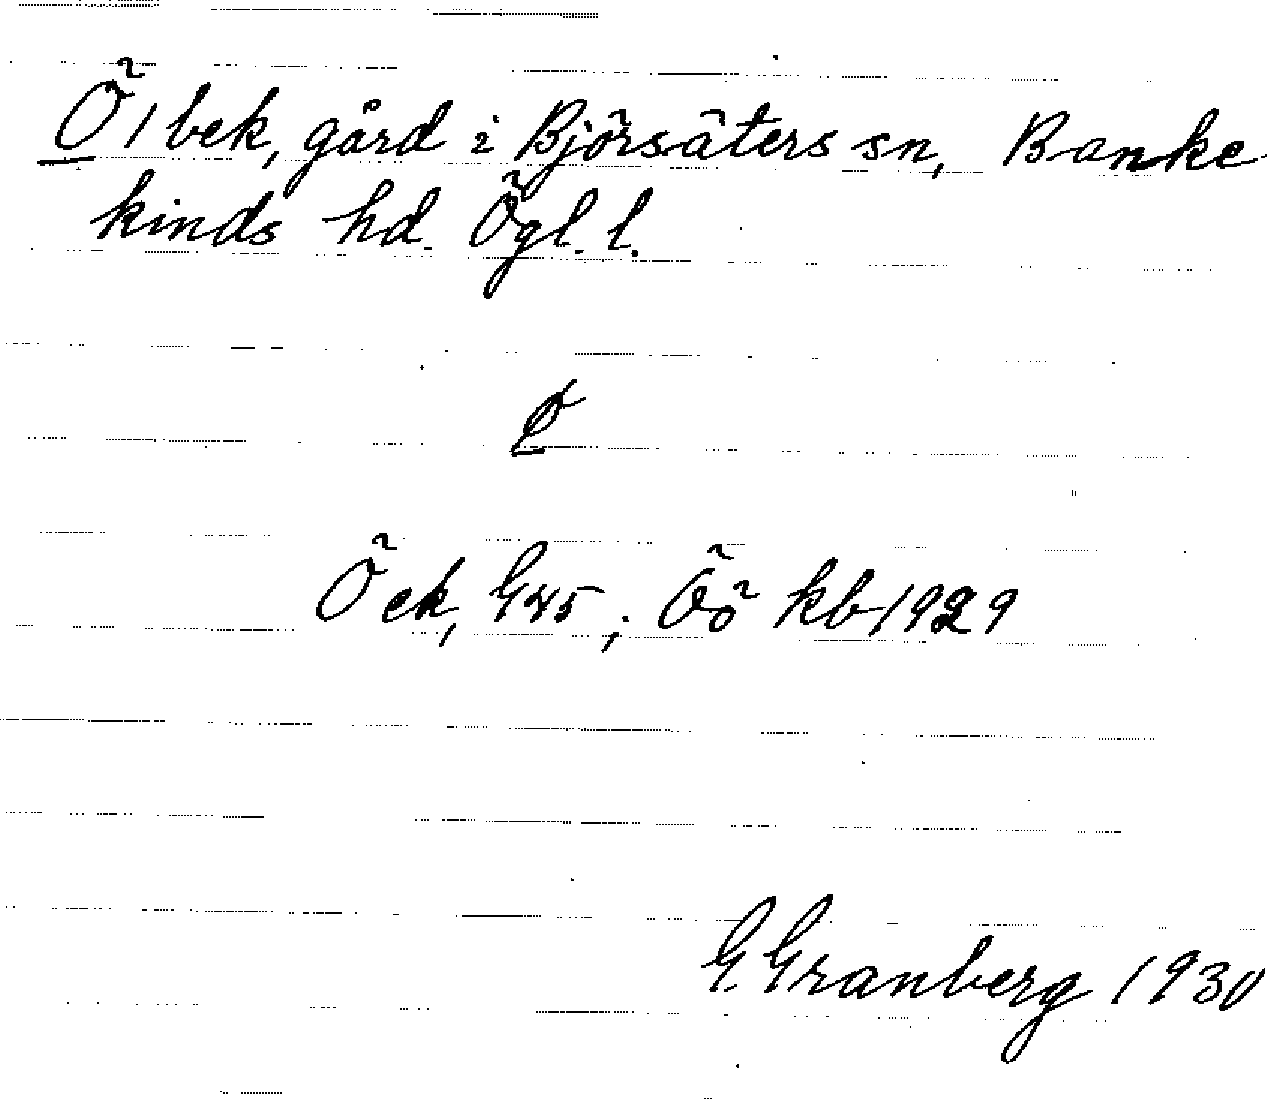 Ölbek, gård i Björsäters sn, Banke
kinds hd. Ögl. l.
Öck, G45; Öö kb 1929
G. Granberg 1930